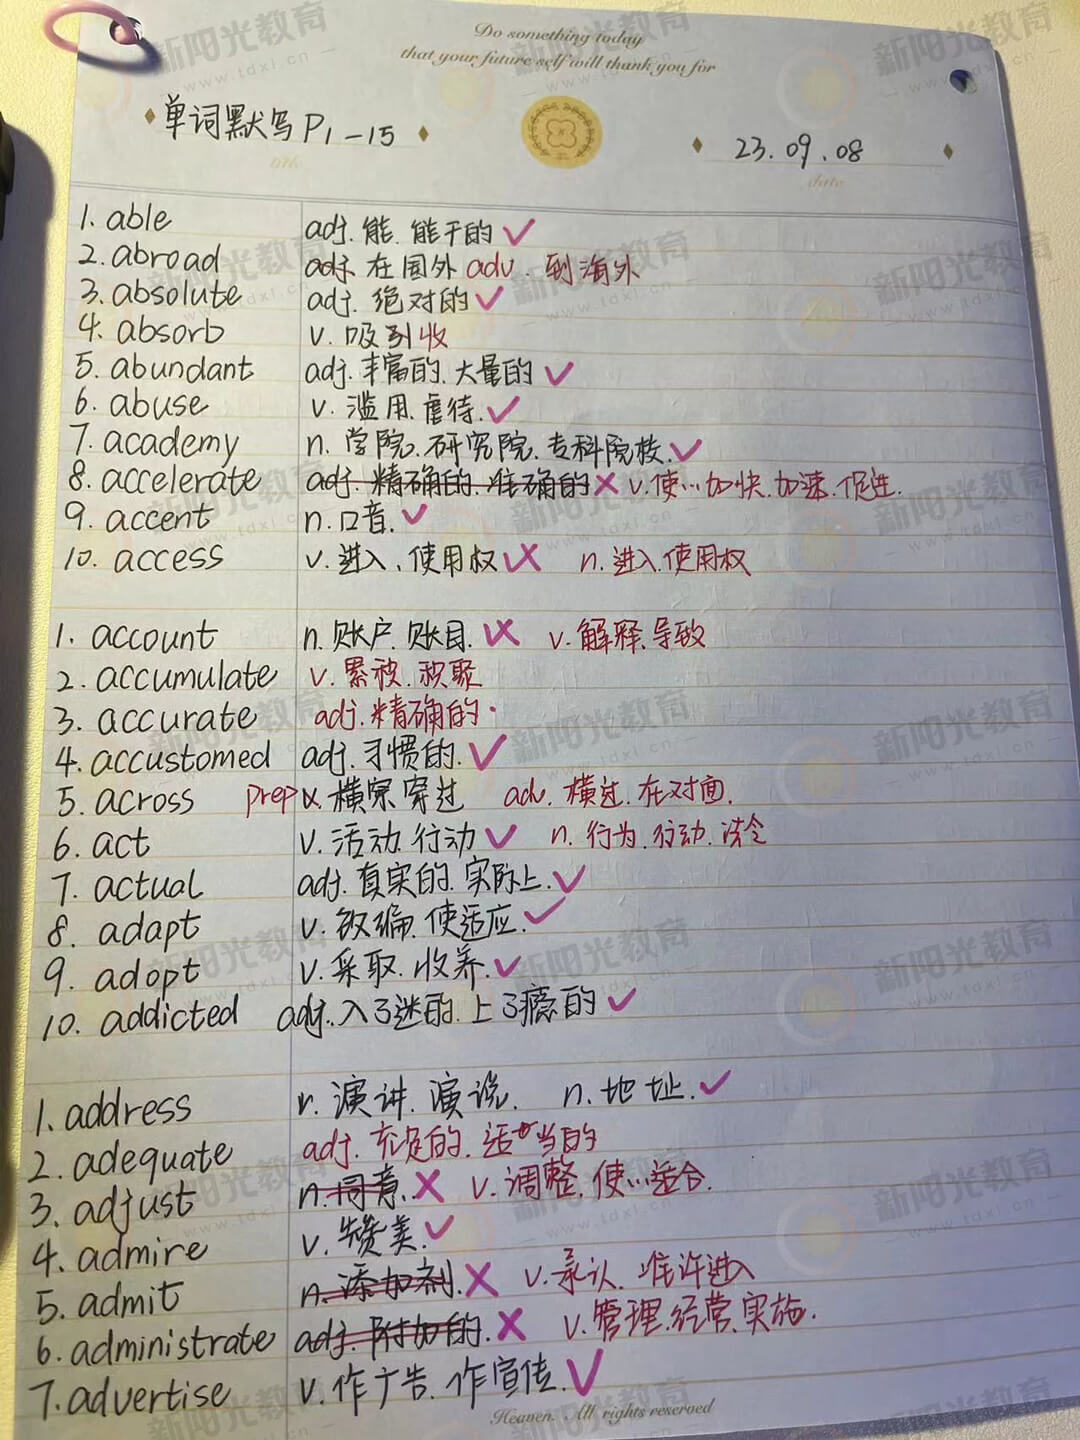 Do something today
that your future self will thank you for
单词默写P1-15
23.09.08
date
1. able adj. 能. 能干的 ✓
2. abroad adj. 在国外 adv. 到海外
3. absolute adj. 绝对的 ✓
4. absorb v. 吸引收
5. abundant adj. 丰富的. 大量的 ✓
6. abuse v. 滥用. 虐待. ✓
7. academy n. 学院. 研究院. 专科院校. ✓
8. accelerate adj. 精确的. 准确的 × v. 使… 加快. 加速. 促进.
9. accent n. 口音. ✓
10. access v. 进入、使用权 ✓× n. 进入. 使用权
1. account n. 账户. 账目. ✓× v. 解释. 导致
2. accumulate v. 累积. 积聚
3. accurate adj. 精确的.
4. accustomed adj. 习惯的. ✓
5. across prep v. 横穿 穿过 adv. 横过. 在对面.
6. act v. 活动. 行动 ✓ n. 行为. 行动. 法令
7. actual adj. 真实的. 实际上. ✓
8. adapt v. 改编. 使适应. ✓
9. adopt v. 采取. 收养. ✓
10. addicted adj. 入了迷的. 上了瘾的 ✓
1. address v. 演讲. 演说. n. 地址. ✓
2. adequate adj. 充足的. 适当的
3. adjust n. 同意. × v. 调整. 使… 适合.
4. admire v. 赞美. ✓
5. admit n. 添加剂. × v. 承认. 准许进入
6. administrate adj. 附加的. × v. 管理. 经营. 实施.
7. advertise v. 作广告. 作宣传. ✓
Heaven. All rights reserved
新阳光教育
www.tdxl.cn